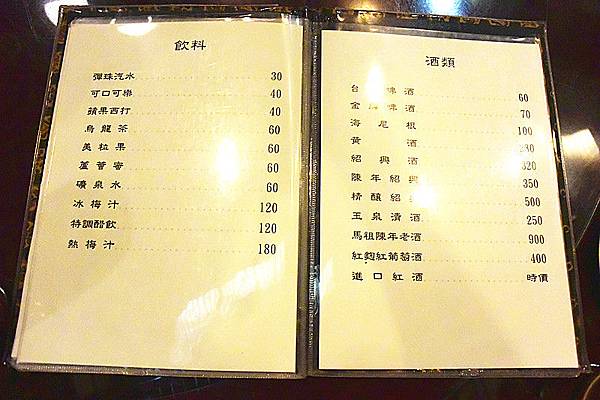 飲料
彈珠汽水 30
可口可樂 40
蘋果西打 40
烏龍茶 60
美粒果 60
蘆薈蜜 60
礦泉水 60
冰梅汁 120
特調醋飲 120
熱梅汁 180
酒類
台 啤酒 60
金 啤酒 70
海尼根 100
黃 酒 280
紹興酒 320
陳年紹興 350
精釀紹 500
玉泉清酒 250
馬祖陳年老酒 900
紅麴紅葡萄酒 400
進口紅酒 時價